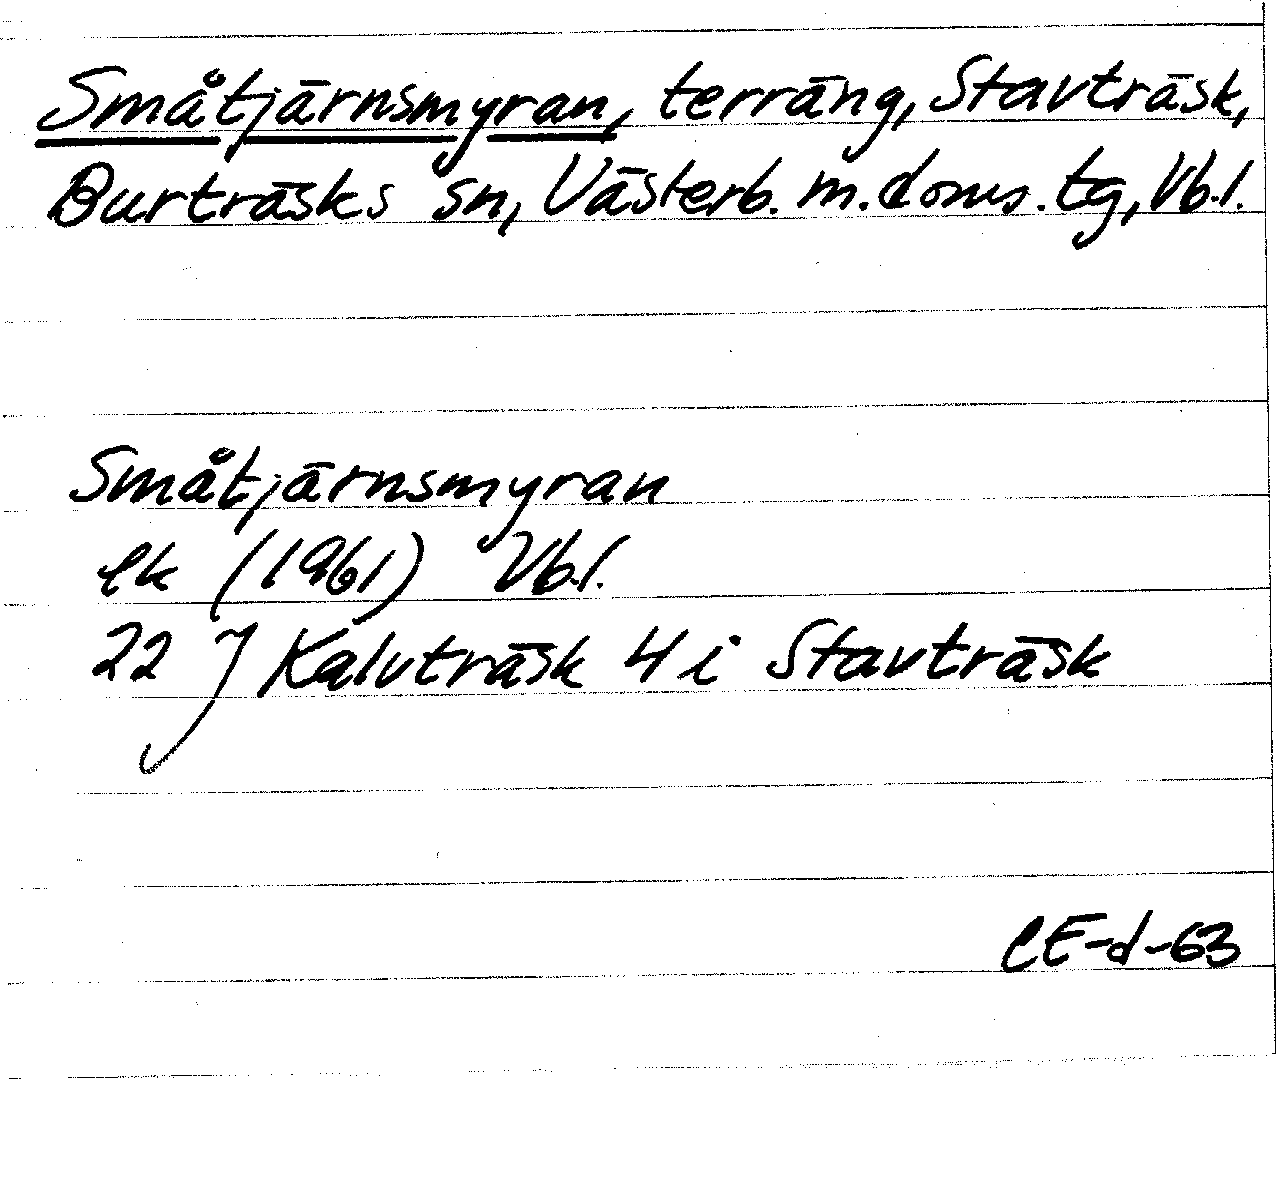 Småtjärnsmyran, terräng, Stavträsk,
Burträsks sn, Västerb. m. doms. tg, Vb.l.
Småtjärnsmyran
ek (1961) Vb.l.
22 J Kalvträsk 4 i Stavträsk
CE-d-63